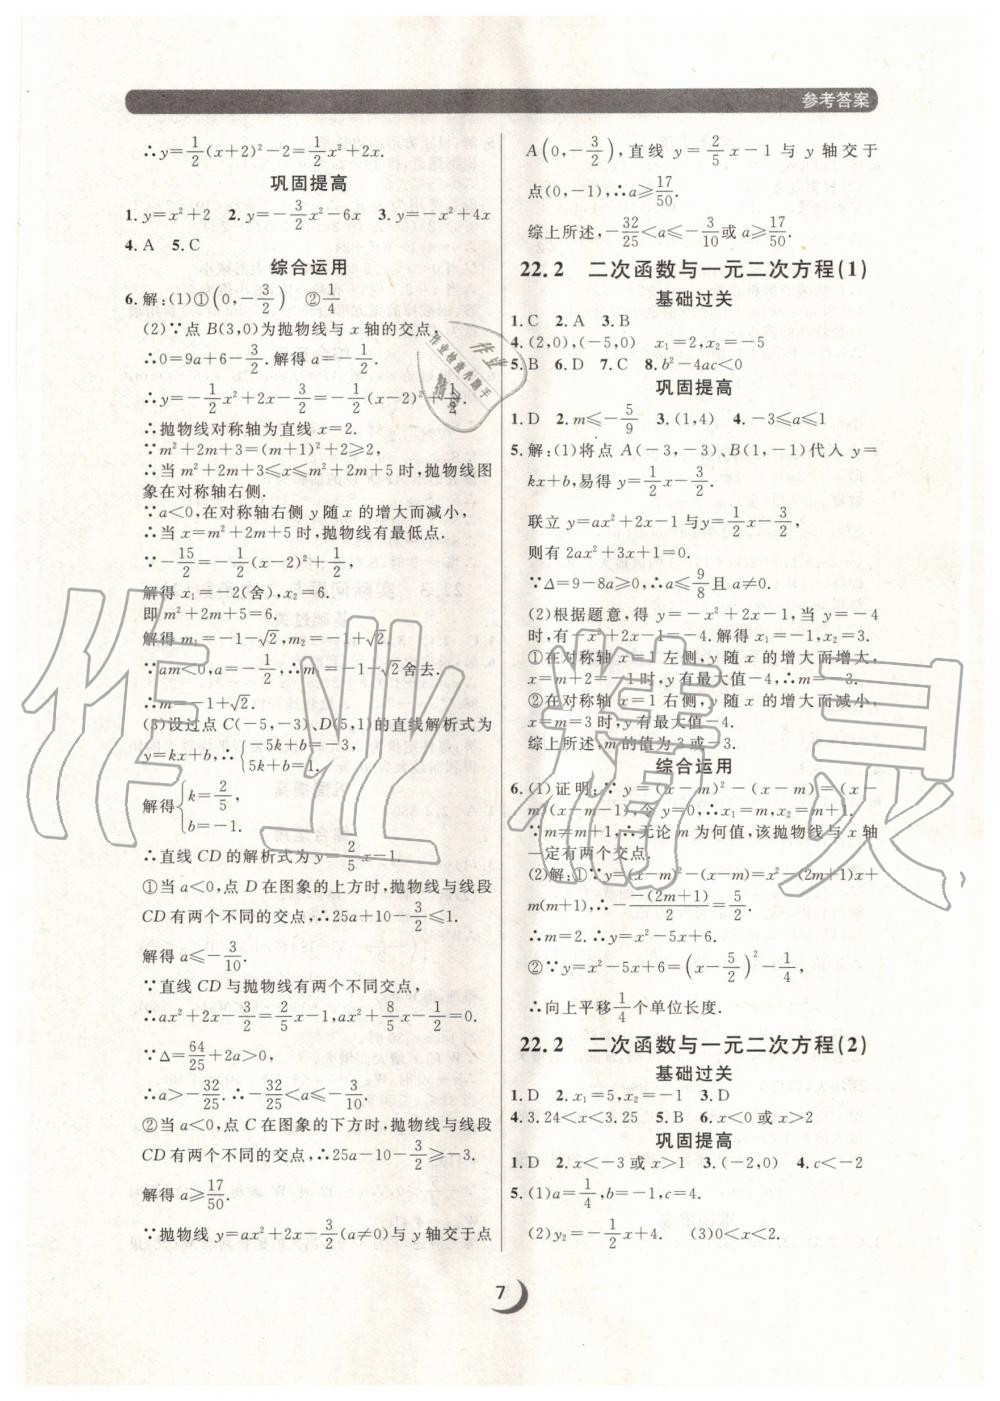 参考答案
∴y=1/2(x+2)²-2=1/2x²+2x.
巩固提高
1. y=x²+2 2. y=-3/2x²-6x 3. y=-x²+4x
4. A 5. C
综合运用
6. 解:(1)①(0,-3/2) ②1/4
(2)∵点 B(3,0)为抛物线与 x 轴的交点,
∴0=9a+6-3/2. 解得 a=-1/2.
∴y=-1/2x²+2x-3/2=-1/2(x-2)²+1/2.
∴抛物线对称轴为直线 x=2.
∵m²+2m+3=(m+1)²+2≥2,
∴当 m²+2m+3≤x≤m²+2m+5 时,抛物线图
象在对称轴右侧.
∵a<0,在对称轴右侧 y 随 x 的增大而减小,
∴当 x=m²+2m+5 时,抛物线有最低点.
∵-15/2=-1/2(x-2)²+1/2,
解得 x₁=-2(舍),x₂=6.
即 m²+2m+5=6.
解得 m₁=-1-√2,m₂=-1+√2.
∵am<0,a=-1/2,∴m=-1-√2舍去.
∴m=-1+√2.
(3)设过点 C(-5,-3)、D(5,1)的直线解析式为
y=kx+b,∴{-5k+b=-3, 5k+b=1.
解得{k=2/5, b=-1.
∴直线 CD 的解析式为 y=2/5x-1.
①当 a<0,点 D 在图象的上方时,抛物线与线段
CD 有两个不同的交点,∴25a+10-3/2≤1.
解得 a≤-3/10.
∵直线 CD 与抛物线有两个不同交点,
∴ax²+2x-3/2=2/5x-1,ax²+8/5x-1/2=0.
∵Δ=64/25+2a>0,
∴a>-32/25. ∴-32/25<a≤-3/10.
②当 a<0,点 C 在图象的下方时,抛物线与线段
CD 有两个不同的交点,∴25a-10-3/2≥-3.
解得 a≥17/50.
∵抛物线 y=ax²+2x-3/2(a≠0)与 y 轴交于点
A(0,-3/2),直线 y=2/5x-1 与 y 轴交于
点(0,-1),∴a≥17/50.
综上所述,-32/25<a≤-3/10或 a≥17/50.
22.2 二次函数与一元二次方程(1)
基础过关
1. C 2. A 3. B
4. (2,0),(-5,0) x₁=2,x₂=-5
5. B 6. D 7. C 8. b²-4ac<0
巩固提高
1. D 2. m≤-5/9 3. (1,4) 4. -3≤a≤1
5. 解:(1)将点 A(-3,-3)、B(1,-1)代入 y=
kx+b,易得 y=1/2x-3/2.
联立 y=ax²+2x-1与y=1/2x-3/2,
则有 2ax²+3x+1=0.
∵Δ=9-8a≥0,∴a≤9/8且 a≠0.
(2)根据题意,得 y=-x²+2x-1,当 y=-4
时,有-x²+2x-1=-4. 解得 x₁=-1,x₂=3.
①在对称轴 x=1 左侧,y 随 x 的增大而增大,
x=m+2=-1时,y有最大值-4. ∴m=-3.
②在对称轴 x=1 右侧,y 随 x 的增大而减小,
x=m=3时,y有最大值-4.
综上所述,m的值为3或-3.
综合运用
6. (1)证明:∵y=(x-m)²-(x-m)=(x-
m)(x-m-1),令 y=0,∴x₁=m,x₂=m+1.
∵m≠m+1,∴无论 m 为何值,该抛物线与 x 轴
一定有两个交点.
(2)解:①∵y=(x-m)²-(x-m)=x²-(2m+1)x+
m(m+1),∴- -(2m+1)/2=5/2.
∴m=2. ∴y=x²-5x+6.
②∵y=x²-5x+6=(x-5/2)²-1/4,
∴向上平移1/4个单位长度.
22.2 二次函数与一元二次方程(2)
基础过关
1. D 2. x₁=5,x₂=-1 3. D
4. 3.24<x<3.25 5. B 6. x<0 或 x>2
巩固提高
1. D 2. x<-3 或 x>1 3. (-2,0) 4. c<-2
5. (1)a=1/4,b=-1,c=4.
(2)y₂=-1/2x+4. (3)0<x<2.
7
作业精灵
作业
作业检查小助手
精灵